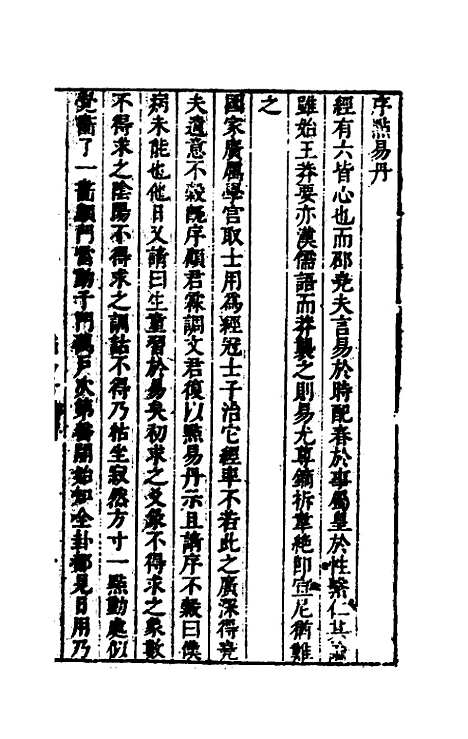 序點易丹
經有六皆心也而邵堯夫言易於時配春於事屬皇於性繫仁其
雖始王莽要亦漢儒語而莽襲之則易尤尊鏑折韋絕即宣尼猶難
之
國家廣厲學官取士用為經冠士子治它經率不若此之廣深得堯
夫遺意不穀旣序顧君霖調文君復以點易丹示且請序不穀曰僕
病未能也他日又請曰生童習於易矣初求之爻彖不得求之象數
不得求之陰陽不得求之訓詁不得乃枯坐寂然方寸一點動處似
覺 了一 門雷動千門 戶次第 開始知全卦都見日用乃